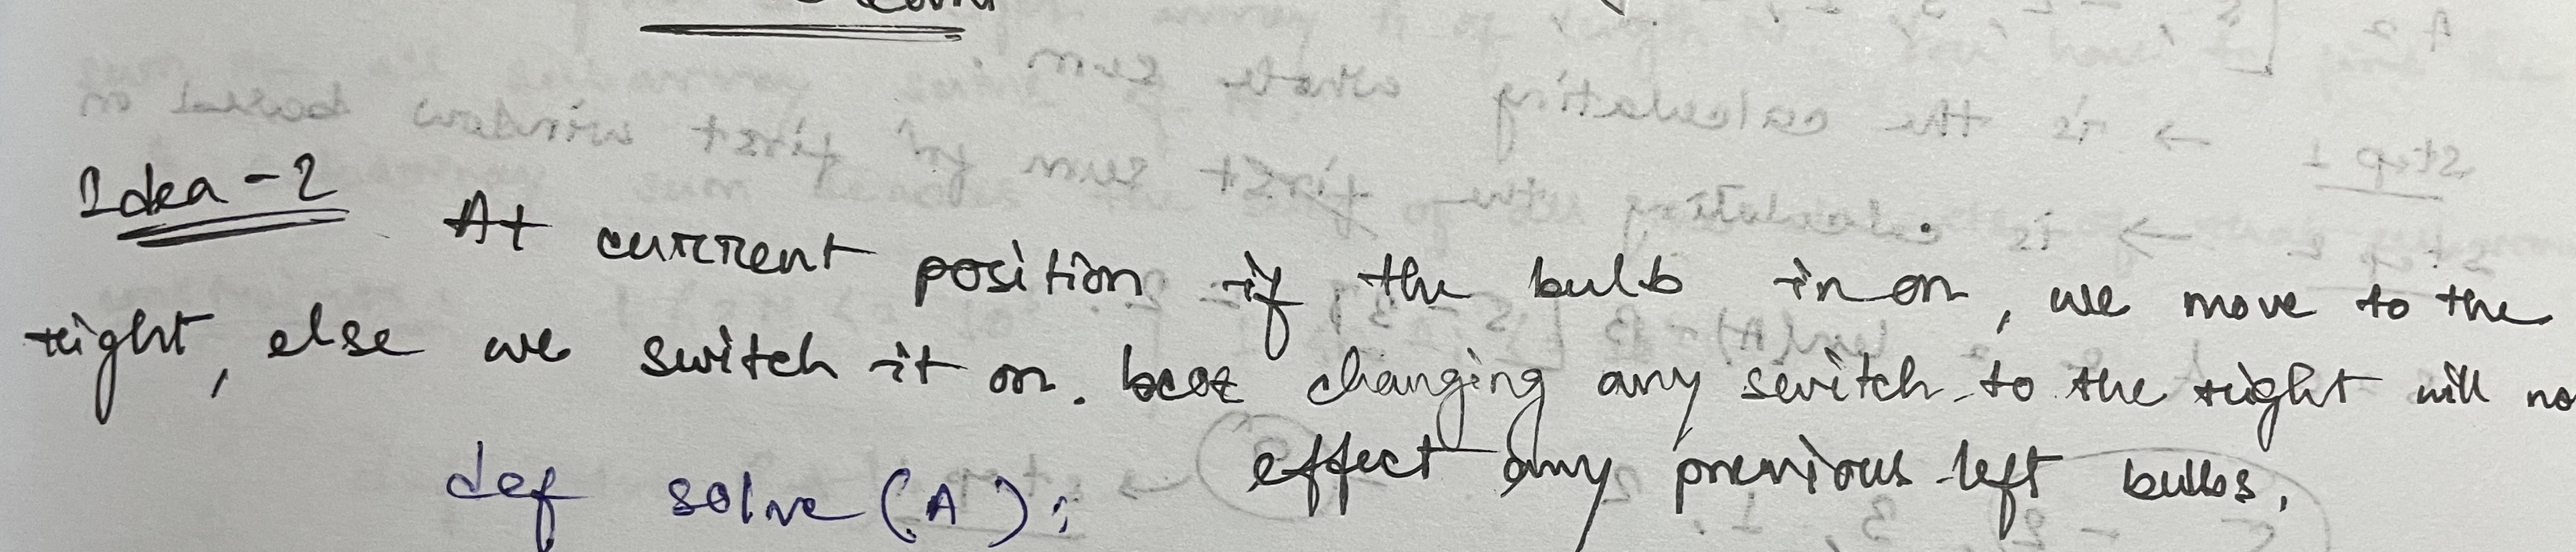 Idea-2 At current position if the bulb in on, we move to the
right, else we switch it on. bcoz changing any switch to the right will no
effect any previous left bulbs.
def solve(A):